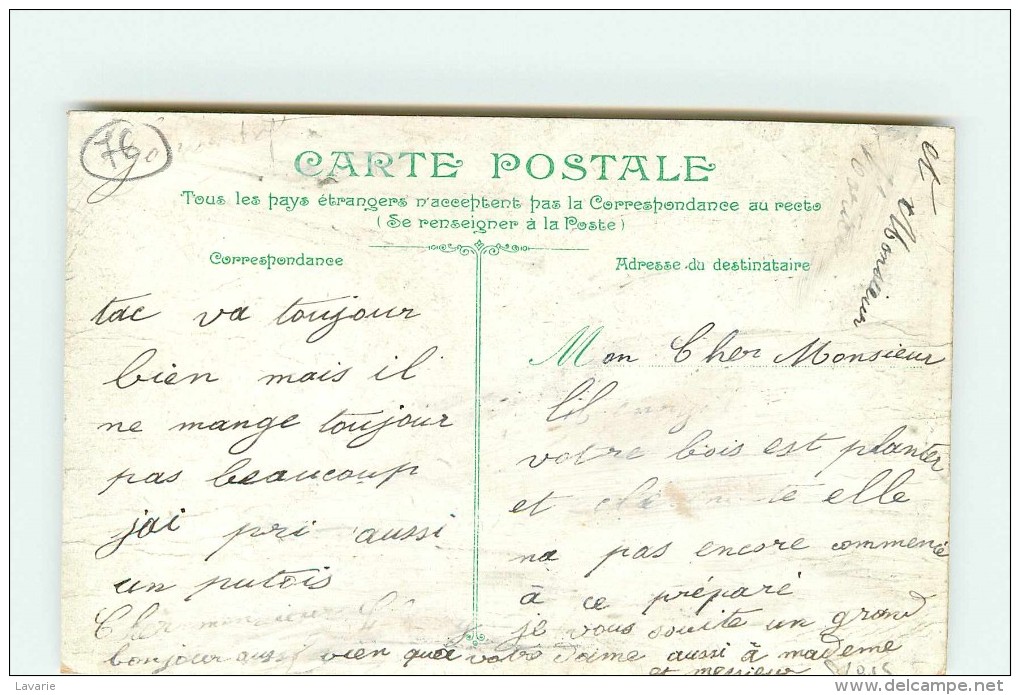 76
CARTE POSTALE
Tous les pays étrangers n'acceptent pas la Correspondance au recto
(Se renseigner à la Poste)
Correspondance
tac va toujour
bien mais il
ne mange toujour
pas beaucoup
jai pri aussi
un putois
Cher monsieur
bonjour aussi bien qua votre Dame aussi à madame
et monsieur
Adresse du destinataire
Mon Cher Monsieur
votre bois est planter
et elle
na pas encore commencé
à ce préparé
je vous souite un grand
et Monsieur
Lavarie
delcampe.net